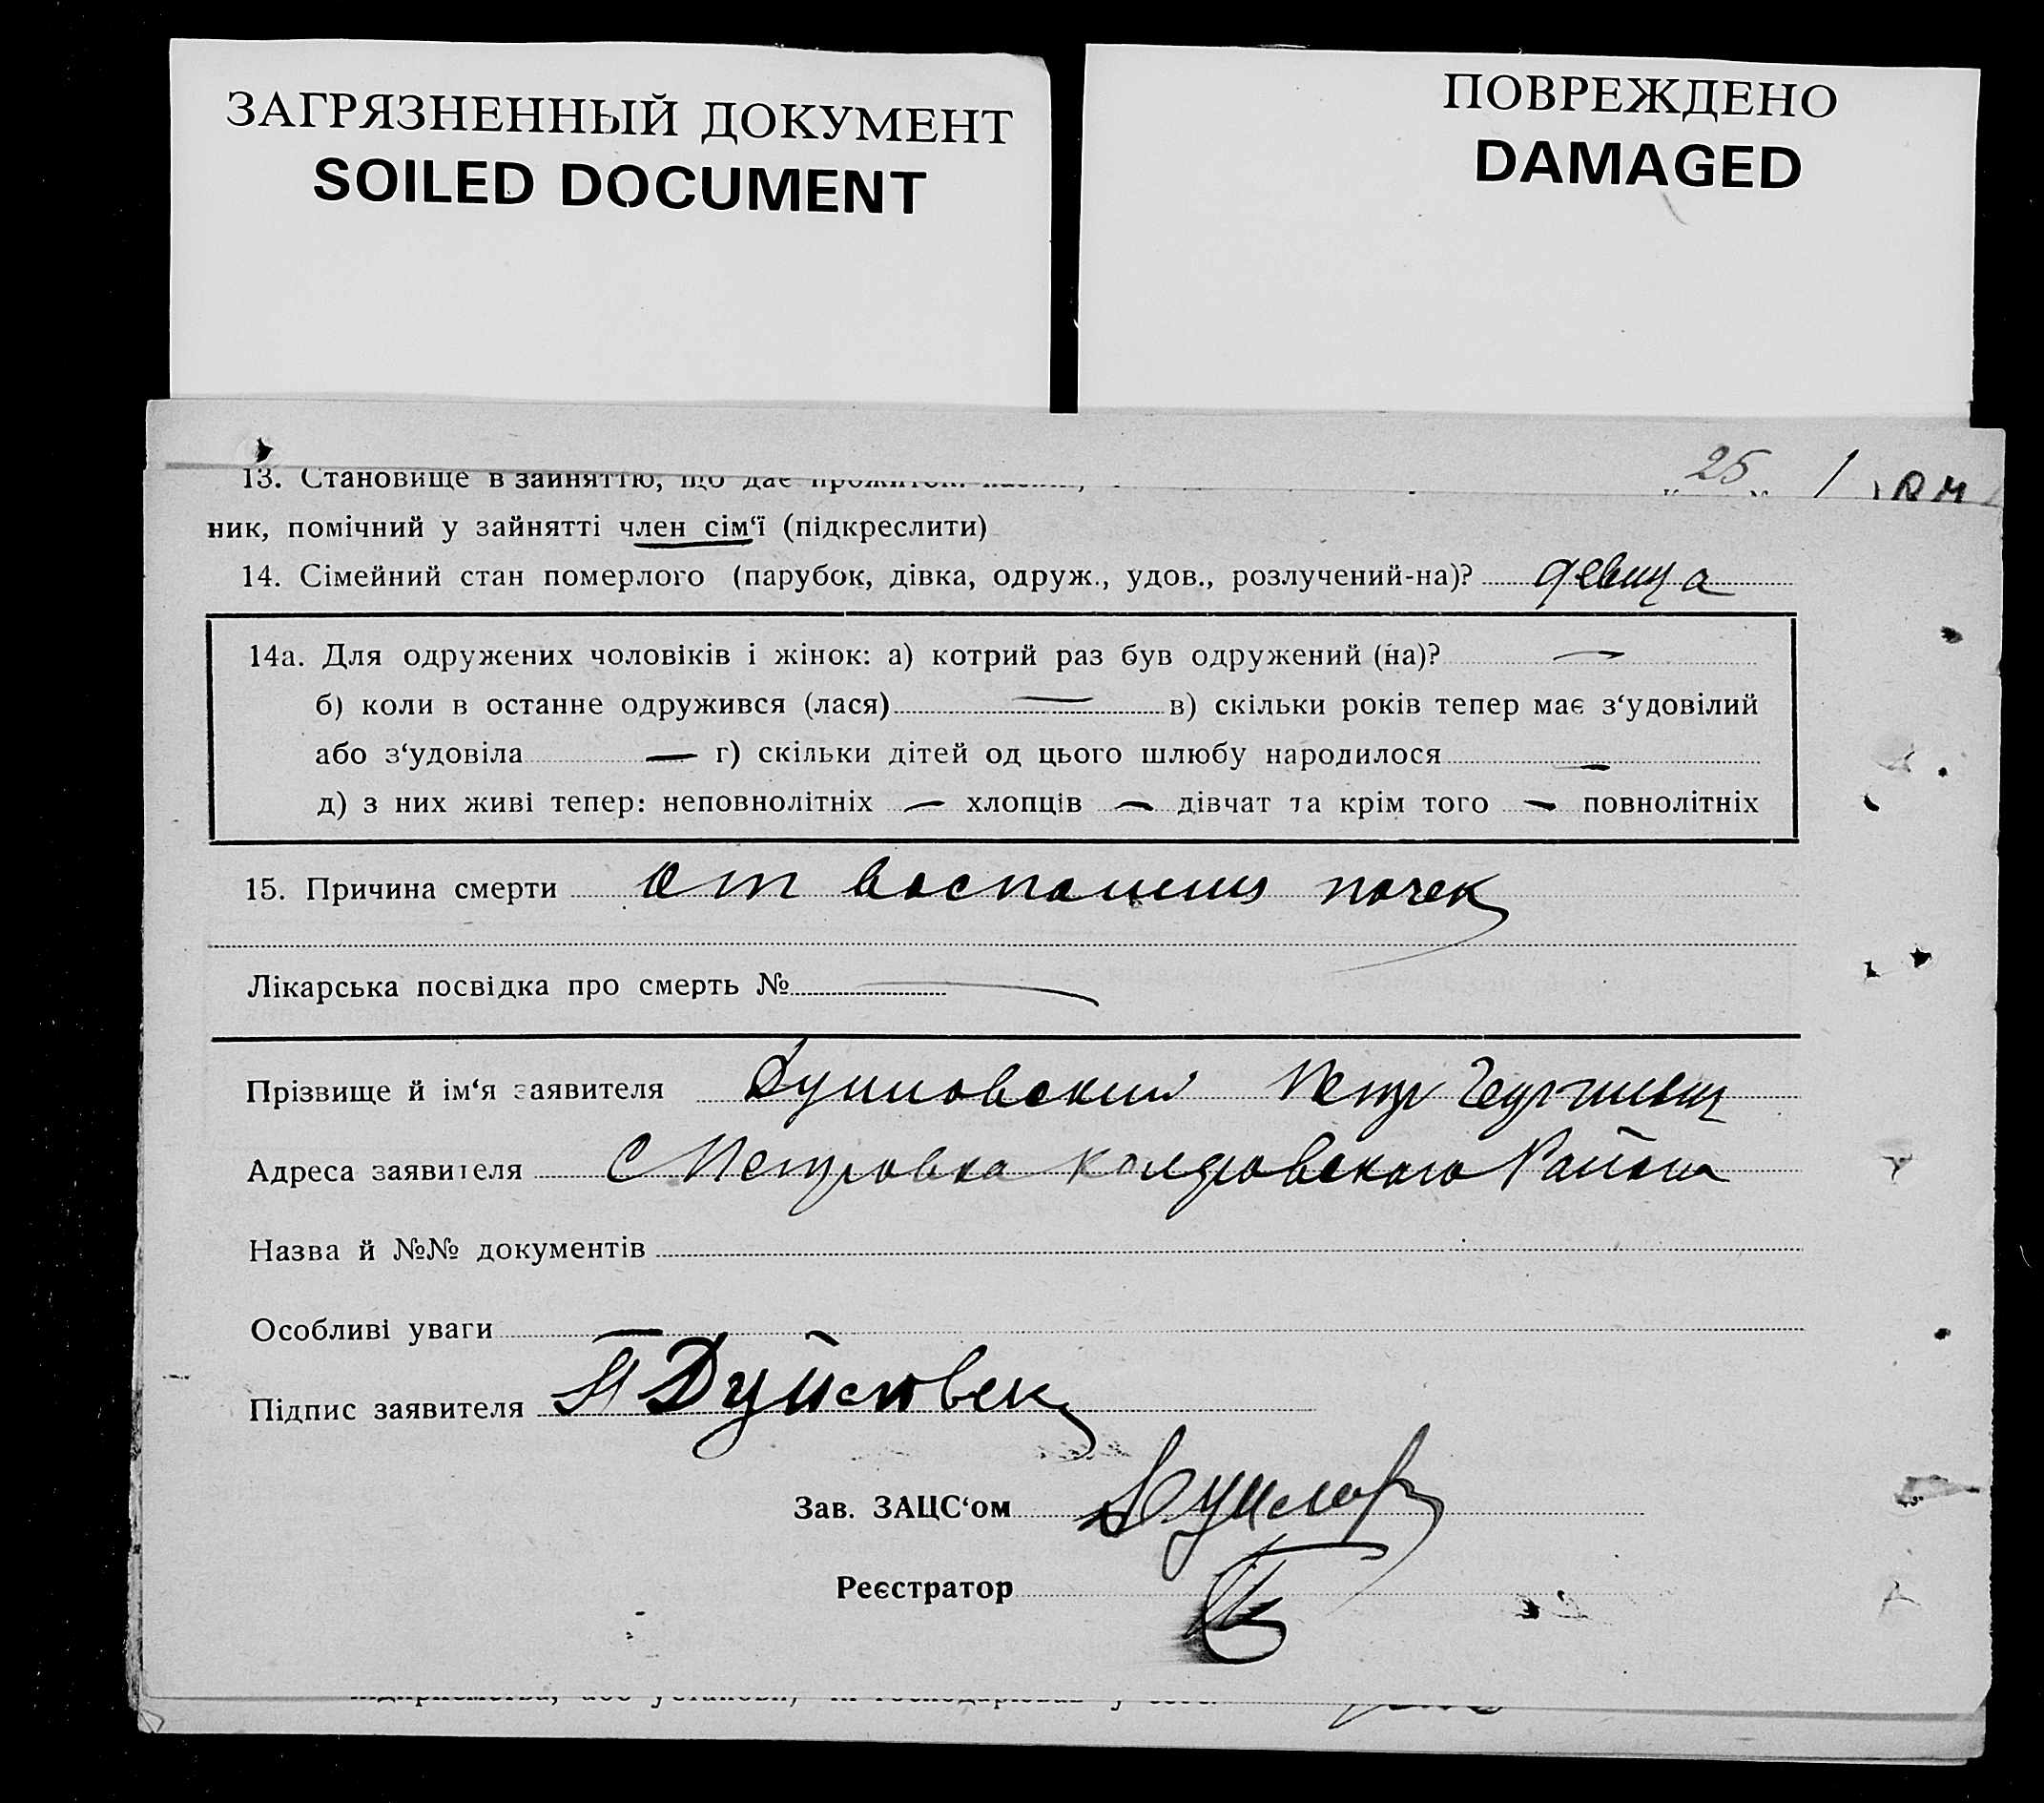 ЗАГРЯЗНЕННЫЙ ДОКУМЕНТ
SOILED DOCUMENT
ПОВРЕЖДЕНО
DAMAGED
25
13. Становище в зайняттю, що дає
ник, помічний у зайнятті член сім‘ї (підкреслити)
14. Сімейний стан померлого (парубок, дівка, одруж., удов., розлучений-на)? девица
14а. Для одружених чоловіків і жінок: а) котрий раз був одружений (на)? —
б) коли в останнє одружився (лася) — в) скільки років тепер має з‘удовілий
або з‘удовіла — г) скільки дітей од цього шлюбу народилося —
д) з них живі тепер: неповнолітніх — хлопців — дівчат та крім того — повнолітніх
15. Причина смерти От воспаления почек
Лікарська посвідка про смерть № —
Прізвище й ім‘я заявителя Петр
Адреса заявителя С Петровка Района
Назва й №№ документів
Особливі уваги —
Підпис заявителя
Зав. ЗАЦС‘ом
Реєстратор